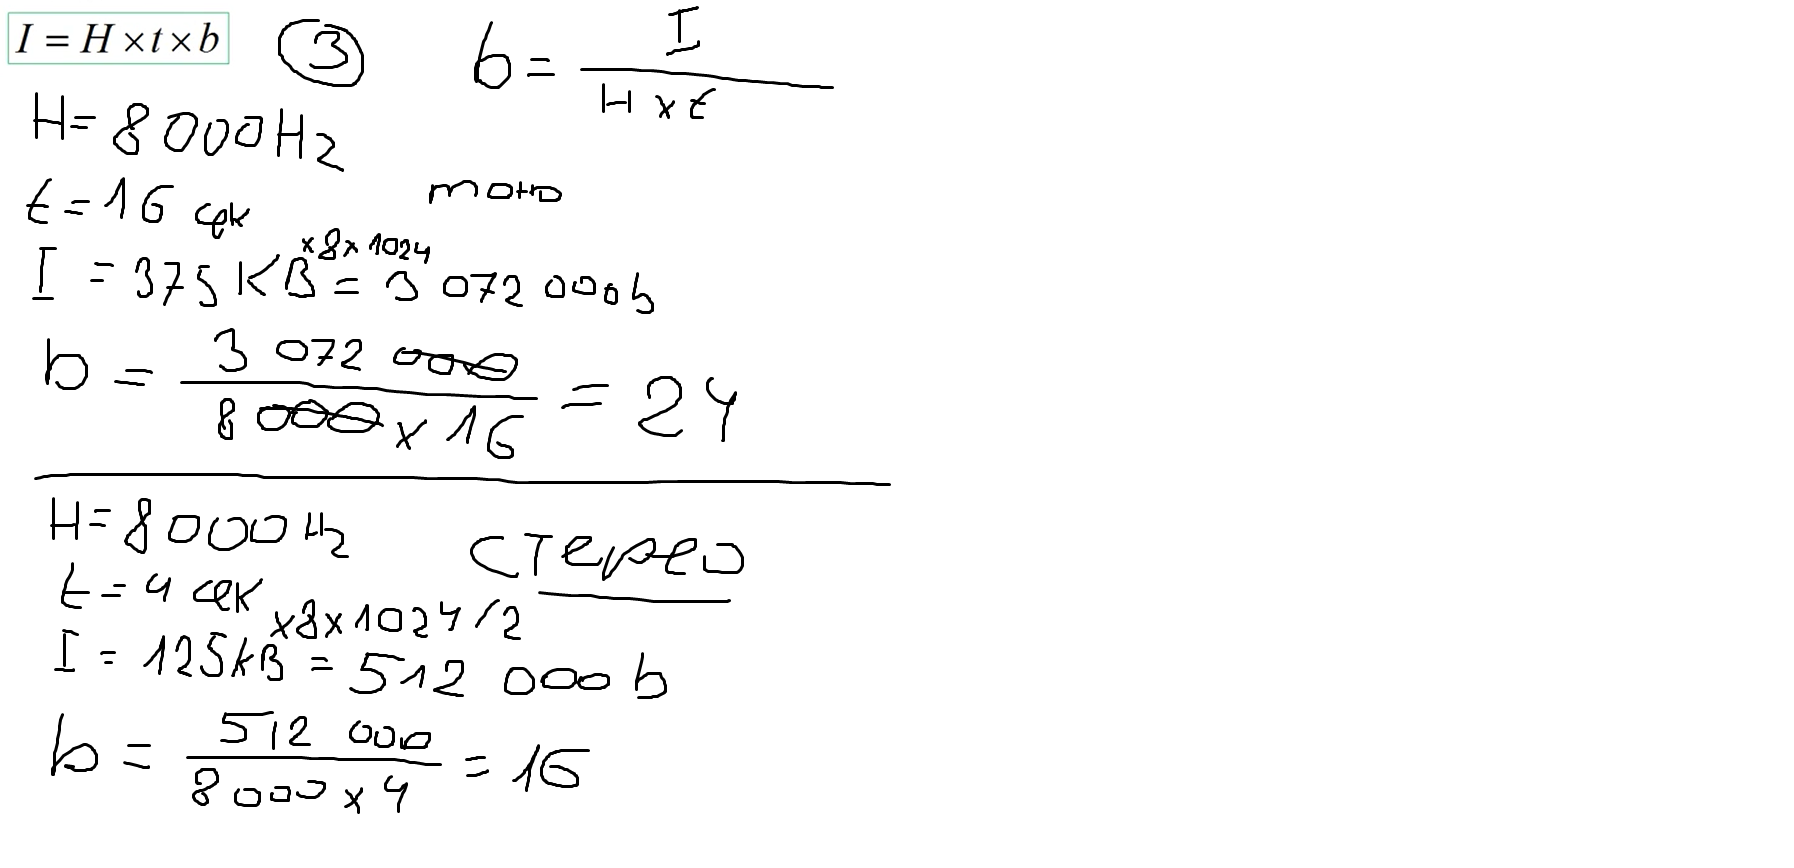 I = H × t × b
3
b = I / H × t
H = 8000Hz
t = 16 сек
моно
I = 375 KB ×8×1024 = 3 072 000b
b = 3 072 000 / 8000 × 16 = 24
H = 8000Hz
стерео
t = 4 сек
I = 125kB ×8×1024/2 = 512 000 b
b = 512 000 / 8000 × 4 = 16